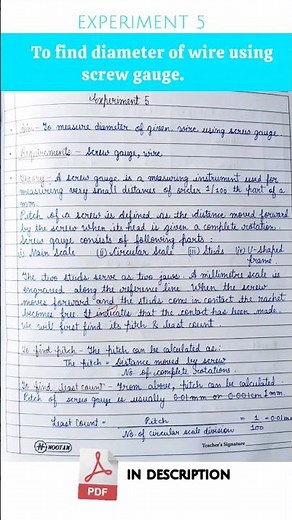 EXPERIMENT 5
To find diameter of wire using
screw gauge.
Experiment 5
Aim - To measure diameter of given wire using screw gauge
Requirements - Screw gauge, wire
Theory - A screw gauge is a measuring instrument used for
measuring very small distance of order 1/100 th part of a
mm.
Pitch of a screw is defined as the distance moved forward
by the screw when its head is given a complete rotation.
Screw gauge consists of following parts:
(i) Main Scale (ii) Circular Scale (iii) Studs (iv) U-shaped
frame
The two studs serve as two jaws. A millimetre scale is
engraved along the reference line. When the screw
moves forward and the studs come in contact the rachet
becomes free. It indicates that the contact has been made.
We will first find its pitch & least count
To find pitch - The pitch can be calculated as:
The pitch = Distance moved by screw
No. of complete rotations.
To find least count - From above, pitch can be calculated.
Pitch of screw gauge is usually 0.01mm or 0.001cm 1mm.
Least Count = Pitch = 1 = 0.01mm
No. of circular scale division 100
NOOTAN
Teacher's Signature
PDF
IN DESCRIPTION